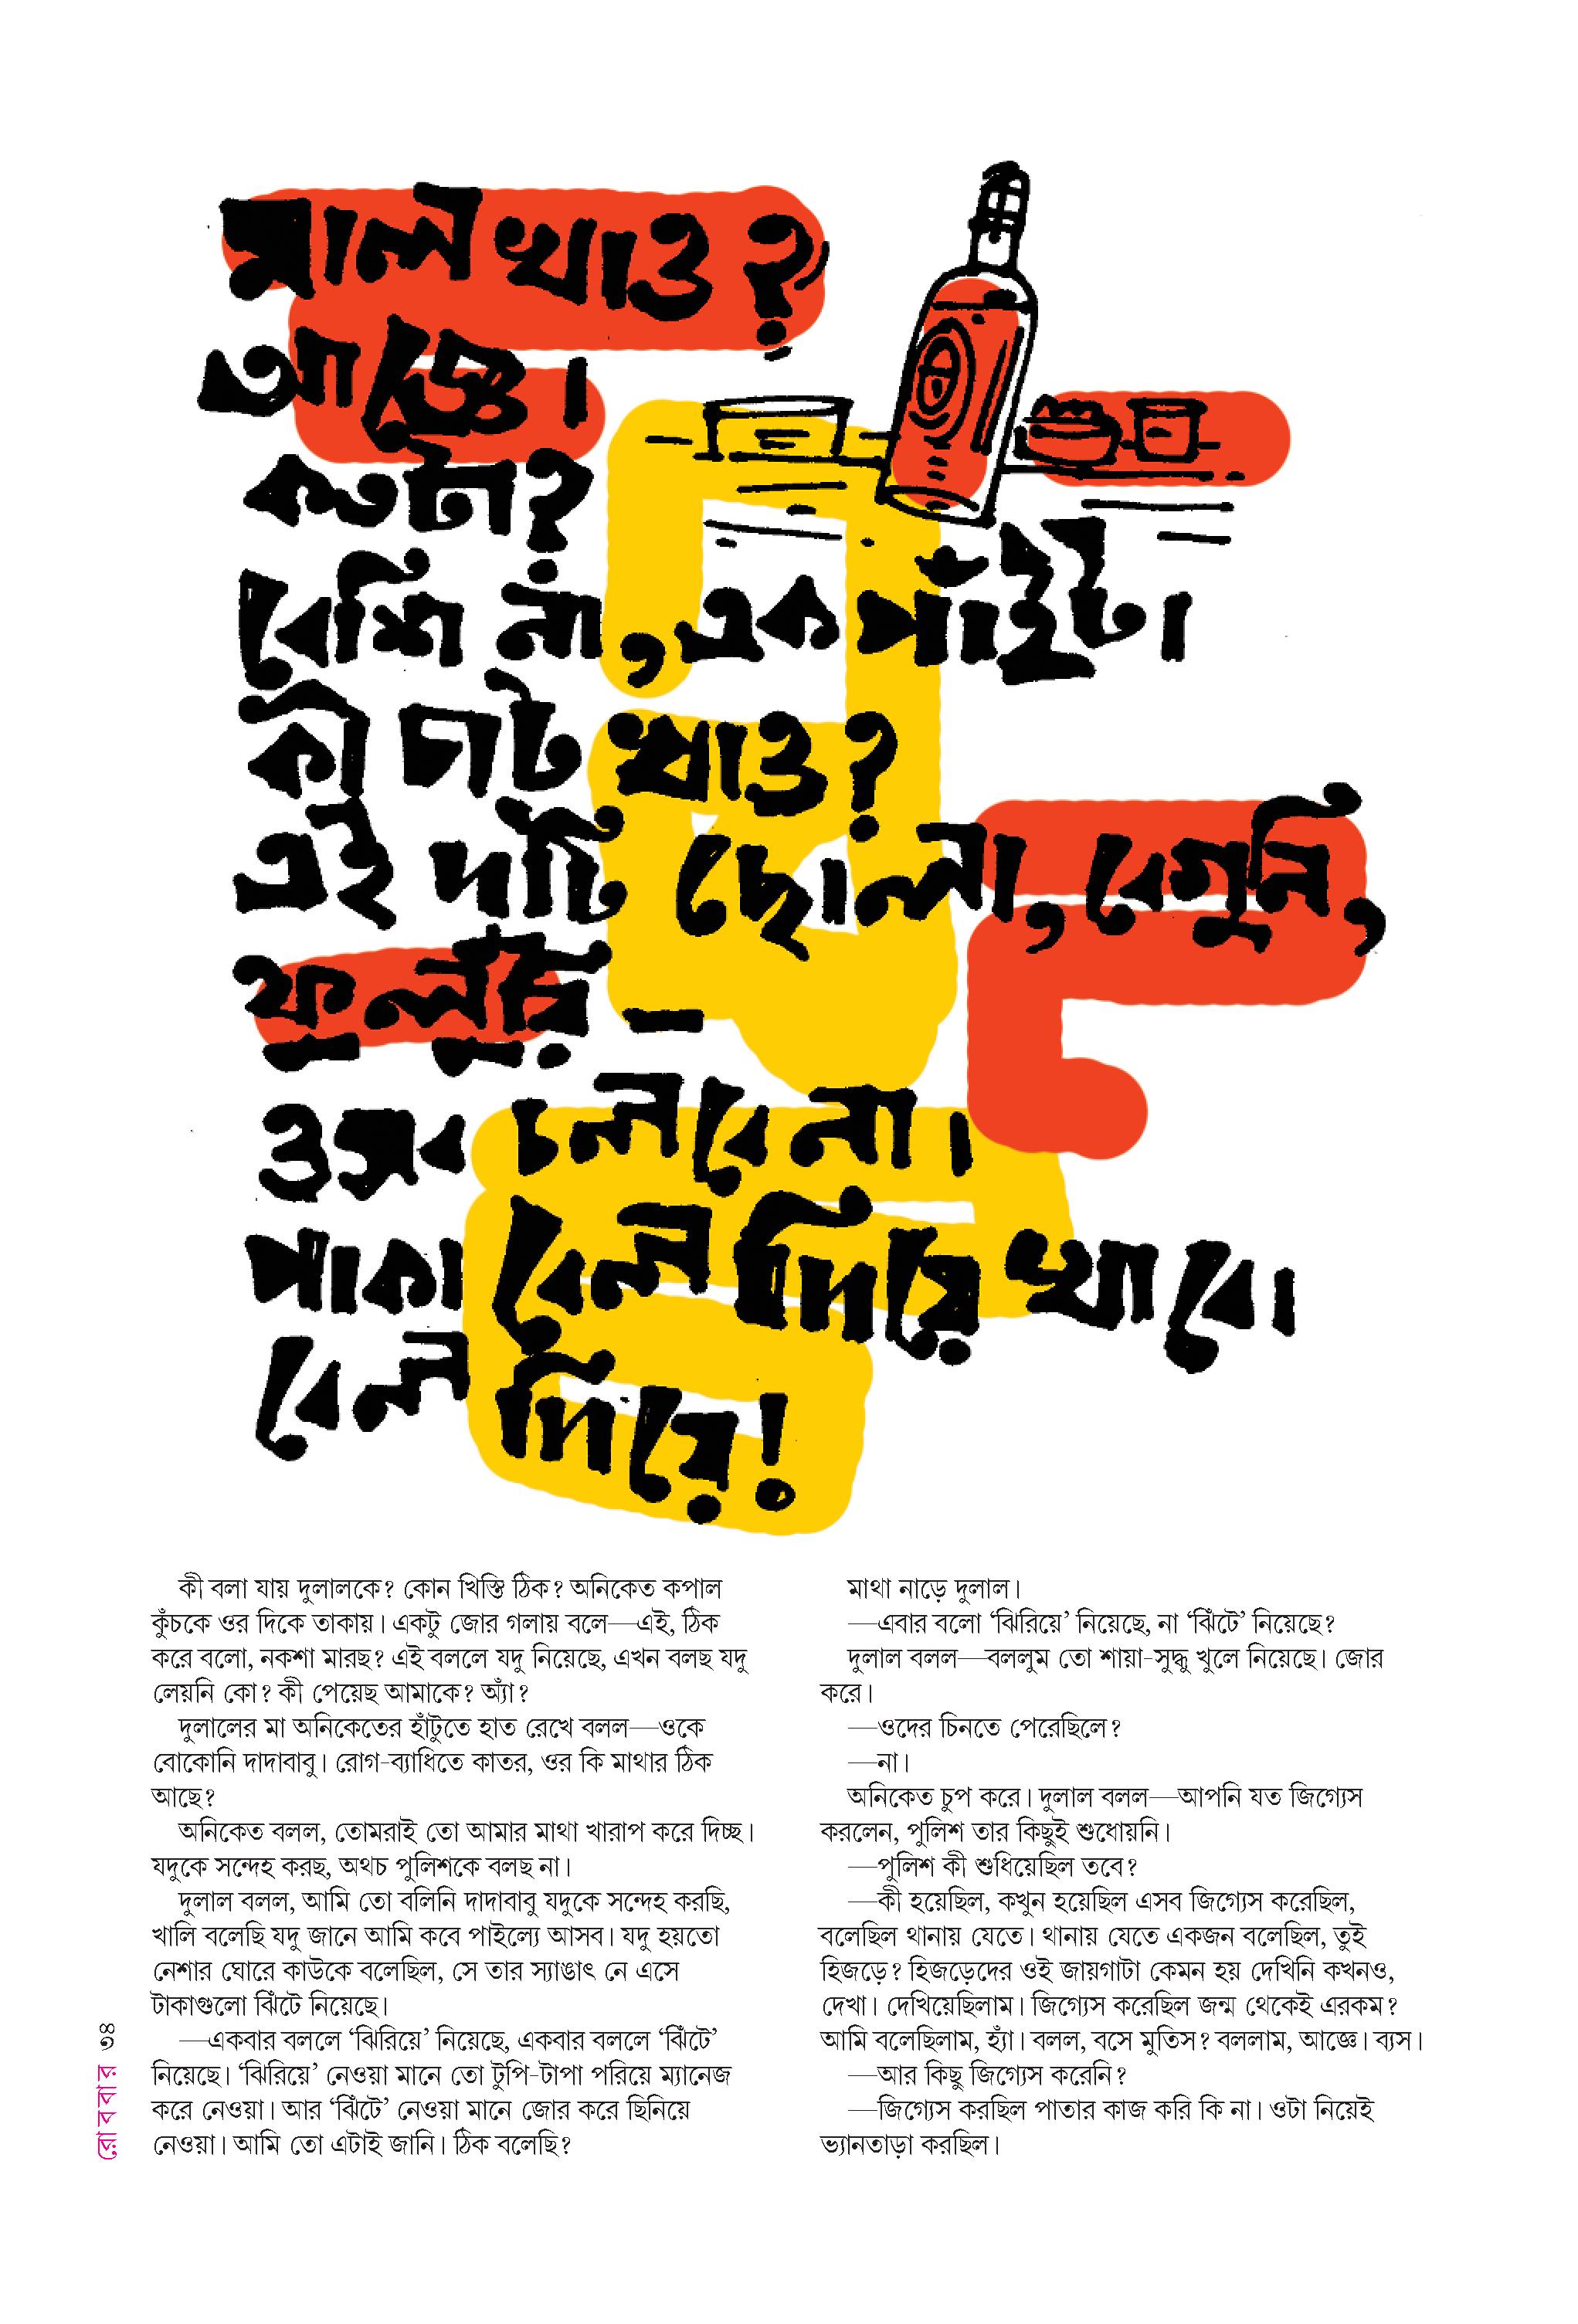 মাল খাও?
আজ্ঞে।
কতটা?
বেশি না, এক পাঁইট।
কী চাট খাও?
এই দ'টি ছোলা, বেগুনি,
ফুলুরি –
ওসব চলবে না।
পাকা বেল দিয়ে খাবে।
বেল দিয়ে!
কী বলা যায় দুলালকে? কোন খিস্তি ঠিক? অনিকেত কপাল
কুঁচকে ওর দিকে তাকায়। একটু জোর গলায় বলে—এই, ঠিক
করে বলো, নকশা মারছ? এই বললে যদু নিয়েছে, এখন বলছ যদু
লেয়নি কো? কী পেয়েছ আমাকে? অ্যাঁ?
দুলালের মা অনিকেতের হাঁটুতে হাত রেখে বলল—ওকে
বোকোনি দাদাবাবু। রোগ-ব্যাধিতে কাতর, ওর কি মাথার ঠিক
আছে?
অনিকেত বলল, তোমরাই তো আমার মাথা খারাপ করে দিচ্ছ।
যদুকে সন্দেহ করছ, অথচ পুলিশকে বলছ না।
দুলাল বলল, আমি তো বলিনি দাদাবাবু যদুকে সন্দেহ করছি,
খালি বলেছি যদু জানে আমি কবে পাইল্যে আসব। যদু হয়তো
নেশার ঘোরে কাউকে বলেছিল, সে তার স্যাঙাৎ নে এসে
টাকাগুলো ঝিঁটে নিয়েছে।
—একবার বললে ‘ঝিরিয়ে’ নিয়েছে, একবার বললে ‘ঝিঁটে’
নিয়েছে। ‘ঝিরিয়ে’ নেওয়া মানে তো টুপি-টাপা পরিয়ে ম্যানেজ
করে নেওয়া। আর ‘ঝিঁটে’ নেওয়া মানে জোর করে ছিনিয়ে
নেওয়া। আমি তো এটাই জানি। ঠিক বলেছি?
মাথা নাড়ে দুলাল।
—এবার বলো ‘ঝিরিয়ে’ নিয়েছে, না ‘ঝিঁটে’ নিয়েছে?
দুলাল বলল—বললুম তো শায়া-সুদ্ধু খুলে নিয়েছে। জোর
করে।
—ওদের চিনতে পেরেছিলে?
—না।
অনিকেত চুপ করে। দুলাল বলল—আপনি যত জিগ্যেস
করলেন, পুলিশ তার কিছুই শুধোয়নি।
—পুলিশ কী শুধিয়েছিল তবে?
—কী হয়েছিল, কখুন হয়েছিল এসব জিগ্যেস করেছিল,
বলেছিল থানায় যেতে। থানায় যেতে একজন বলেছিল, তুই
হিজড়ে? হিজড়েদের ওই জায়গাটা কেমন হয় দেখিনি কখনও,
দেখা। দেখিয়েছিলাম। জিগ্যেস করেছিল জন্ম থেকেই এরকম?
আমি বলেছিলাম, হ্যাঁ। বলল, বসে মুতিস? বললাম, আজ্ঞে। ব্যস।
—আর কিছু জিগ্যেস করেনি?
—জিগ্যেস করছিল পাতার কাজ করি কি না। ওটা নিয়েই
ভ্যানতাড়া করছিল।
রোববার ৩৪